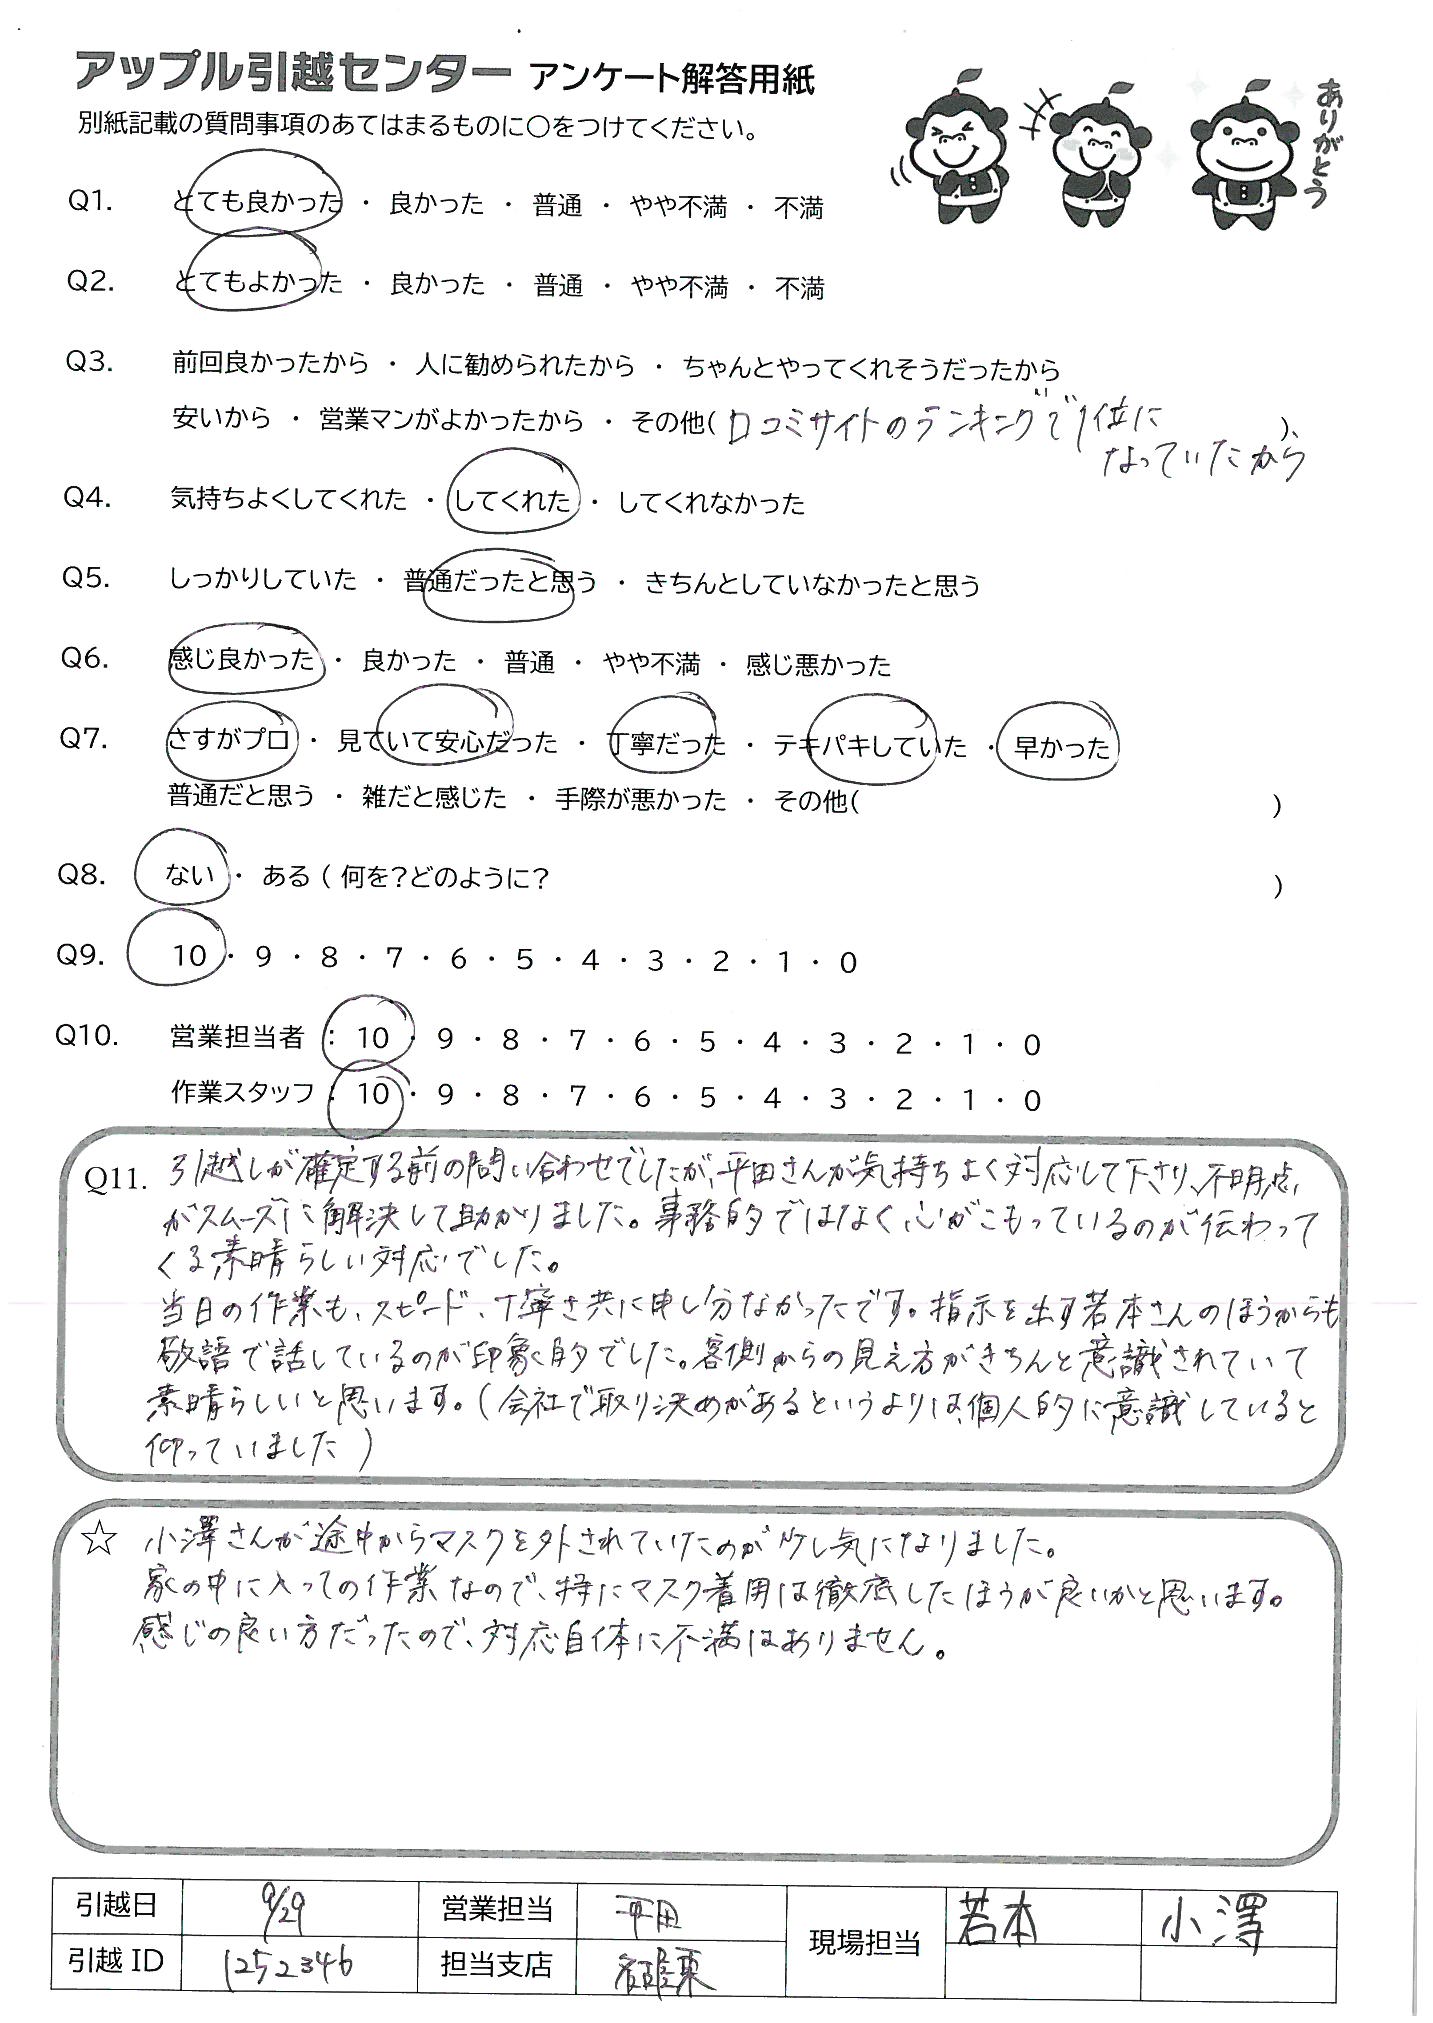 アップル引越センター アンケート解答用紙
別紙記載の質問事項のあてはまるものに〇をつけてください。
ありがとう
Q1. とても良かった ・ 良かった ・ 普通 ・ やや不満 ・ 不満
Q2. とてもよかった ・ 良かった ・ 普通 ・ やや不満 ・ 不満
Q3. 前回良かったから ・ 人に勧められたから ・ ちゃんとやってくれそうだったから
安いから ・ 営業マンがよかったから ・ その他( 口コミサイトのランキングで1位に )
なっていたから
Q4. 気持ちよくしてくれた ・ してくれた ・ してくれなかった
Q5. しっかりしていた ・ 普通だったと思う ・ きちんとしていなかったと思う
Q6. 感じ良かった ・ 良かった ・ 普通 ・ やや不満 ・ 感じ悪かった
Q7. さすがプロ ・ 見ていて安心だった ・ 丁寧だった ・ テキパキしていた ・ 早かった
普通だと思う ・ 雑だと感じた ・ 手際が悪かった ・ その他( )
Q8. ない ・ ある ( 何を?どのように? )
Q9. 10 ・ 9 ・ 8 ・ 7 ・ 6 ・ 5 ・ 4 ・ 3 ・ 2 ・ 1 ・ 0
Q10. 営業担当者 : 10 ・ 9 ・ 8 ・ 7 ・ 6 ・ 5 ・ 4 ・ 3 ・ 2 ・ 1 ・ 0
作業スタッフ : 10 ・ 9 ・ 8 ・ 7 ・ 6 ・ 5 ・ 4 ・ 3 ・ 2 ・ 1 ・ 0
Q11. 引越しが確定する前の問い合わせでしたが、平田さんが気持ちよく対応して下さり、不明点
がスムーズに解決して助かりました。事務的ではなく心がこもっているのが伝わって
くる素晴らしい対応でした。
当日の作業も、スピード、丁寧さ共に申し分なかったです。指示を出す若本さんのほうからも
敬語で話しているのが印象的でした。客側からの見え方がきちんと意識されていて
素晴らしいと思います。(会社で取り決めがあるというよりは、個人的に意識していると
仰っていました)
☆ 小澤さんが途中からマスクを外されていたのが少し気になりました。
家の中に入っての作業なので、特にマスク着用は徹底したほうが良いかと思います。
感じの良い方だったので、対応自体に不満はありません。
引越日 9/29 営業担当 平田 現場担当 若本 小澤
引越 ID 1252346 担当支店